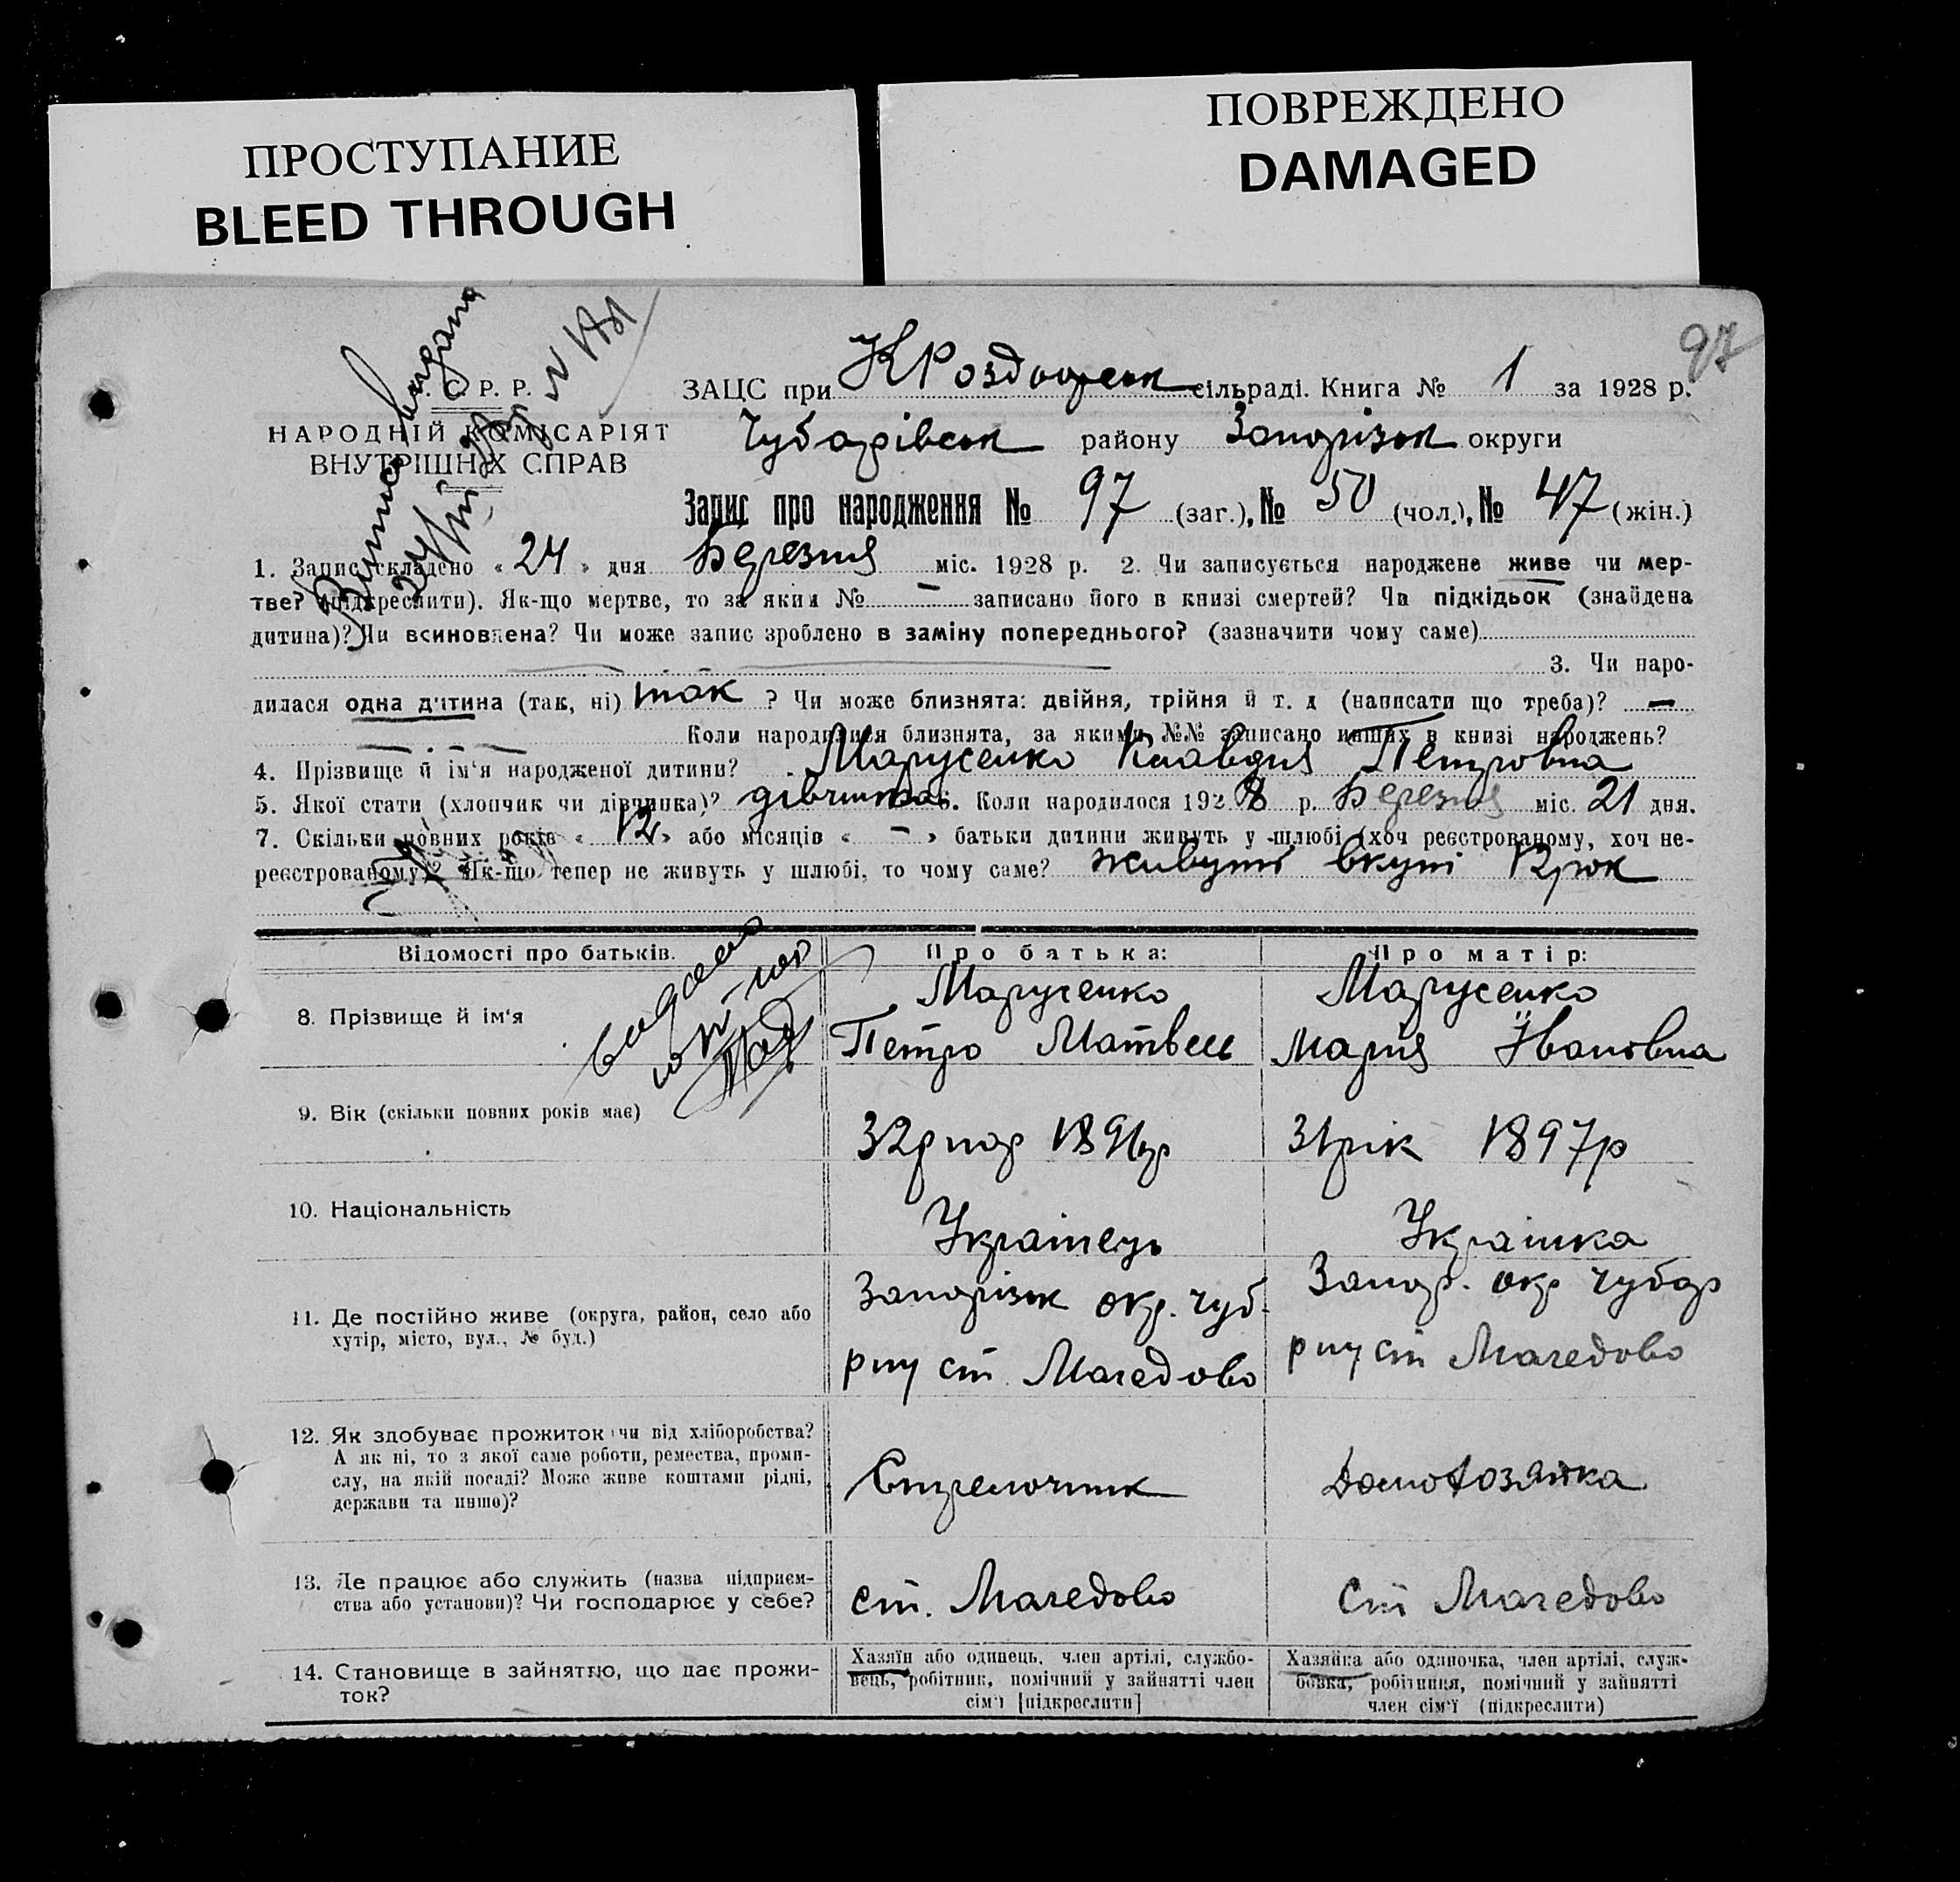 ПРОСТУПАНИЕ
BLEED THROUGH
ПОВРЕЖДЕНО
DAMAGED
97
С. Р. Р.
НАРОДНІЙ КОМІСАРІЯТ
ВНУТРІШНІХ СПРАВ
ЗАЦС при К Роздорськ сільраді. Книга № 1 за 1928 р.
Чубарівськ району Запорізьк округи
Запис про народження № 97 (заг.), № 50 (чол.), № 47 (жін.)
1. Запис складено « 24 » дня Березня міс. 1928 р. 2. Чи записується народжене живе чи мер-
тве? (підкреслити). Як-що мертве, то за яким № — записано його в книзі смертей? Чи підкідьок (знайдена
дитина)? Чи всиновлена? Чи може запис зроблено в заміну попереднього? (зазначити чому саме)
3. Чи наро-
дилася одна дитина (так, ні) так ? Чи може близнята: двійня, трійня й т. д (написати що треба)? —
Коли народилися близнята, за якими №№ записано инших в книзі народжень?
4. Прізвище й ім'я народженої дитини? Марусенко Клавдия Петровна
5. Якої стати (хлопчик чи дівчинка)? дівчинка 6. Коли народилося 1928 р. Березня міс. 21 дня.
7. Скільки повних років « 12 » або місяців « — » батьки дитини живуть у шлюбі (хоч реєстрованому, хоч не-
реєстрованому)? Як-що тепер не живуть у шлюбі, то чому саме? живуть вкупі 12 рок
Відомості про батьків.
Про батька:
Про матір:
8. Прізвище й ім'я
Марусенко
Петро Матвеев
Марусенко
Мария Ївановна
9. Вік (скільки повних років має)
32 1896р
31 рік 1897р
10. Національність
Українець
Українка
11. Де постійно живе (округа, район, село або
хутір, місто, вул., № буд.)
Запорізьк окр. чуб.
рну ст. Магедово
Запор. окр чубар
рну ст Магедово
12. Як здобуває прожиток чи від хліборобства?
А як ні, то з якої саме роботи, ремества, проми-
слу, на якій посаді? Може живе коштами рідні,
держави та инше)?
Стрелочник
Домохозяйка
13. Де працює або служить (назва підприєм-
ства або установи)? Чи господарює у себе?
ст. Магедово
ст Магедово
14. Становище в зайняттю, що дає прожи-
ток?
Хазяїн або одинець, член артілі, службо-
вець, робітник, помічний у зайнятті член
сім'ї [підкреслити]
Хазяйка або одиночка, член артілі, служ-
бовка, робітниця, помічний у зайнятті
член сім'ї (підкреслити)